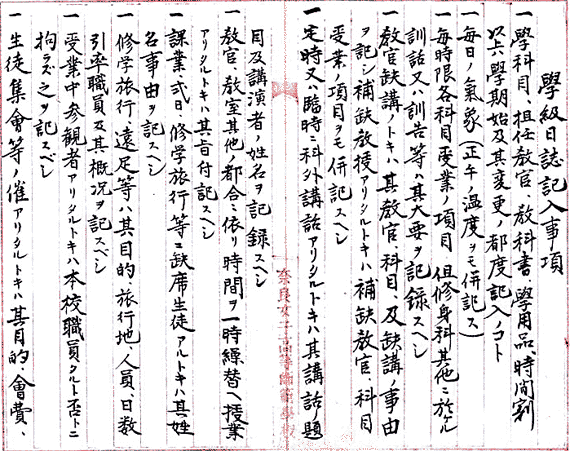 學級日誌記入事項
一 學科目、担任教官、教科書、學用品、時間割
以上學期始及其変更ノ都度記入ノコト
一 毎日ノ氣象（正午ノ温度ヲモ併記ス）
一 毎時限各科目受業ノ項目、但修身科其他ニ於ケル
訓話又ハ訓告等ハ其大要ヲ記録スヘシ
一 教官缺講ノトキハ其教官、科目、及缺講ノ事由
ヲ記シ補缺教授アリタルトキハ補缺教官、科目
受業ノ項目ヲモ併記スヘシ
一 定時又ハ臨時ニ科外講話アリタルトキハ其講話ノ題
目及講演者ノ姓名ヲ記録スヘシ
一 教官、教室其他ノ都合ニ依リ時間ヲ一時繰替ヘ授業
アリタルトキハ其旨付記スヘシ
一 課業式日、修学旅行等ニ缺席生徒アルトキハ其姓
名事由ヲ記スヘシ
一 修学旅行、遠足等ハ其目的、旅行地、人員、日数
引率職員及其概況ヲ記スヘシ
一 受業中参観者アリタルトキハ本校職員タルト否トニ
拘ラズ之ヲ記スベシ
一 生徒集會等ノ催アリタルトキハ其目的、會費、
奈良女子高等師範學校